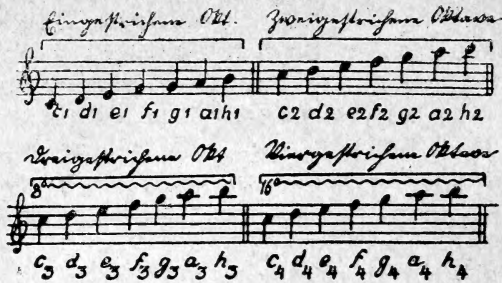 Eingestrichene Okt. Zweigestrichene Oktave
c1 d1 e1 f1 g1 a1 h1 c2 d2 e2 f2 g2 a2 h2
Dreigestrichene Okt Viergestrichene Oktave
8a 16a
c3 d3 e3 f3 g3 a3 h3 c4 d4 e4 f4 g4 a4 h4